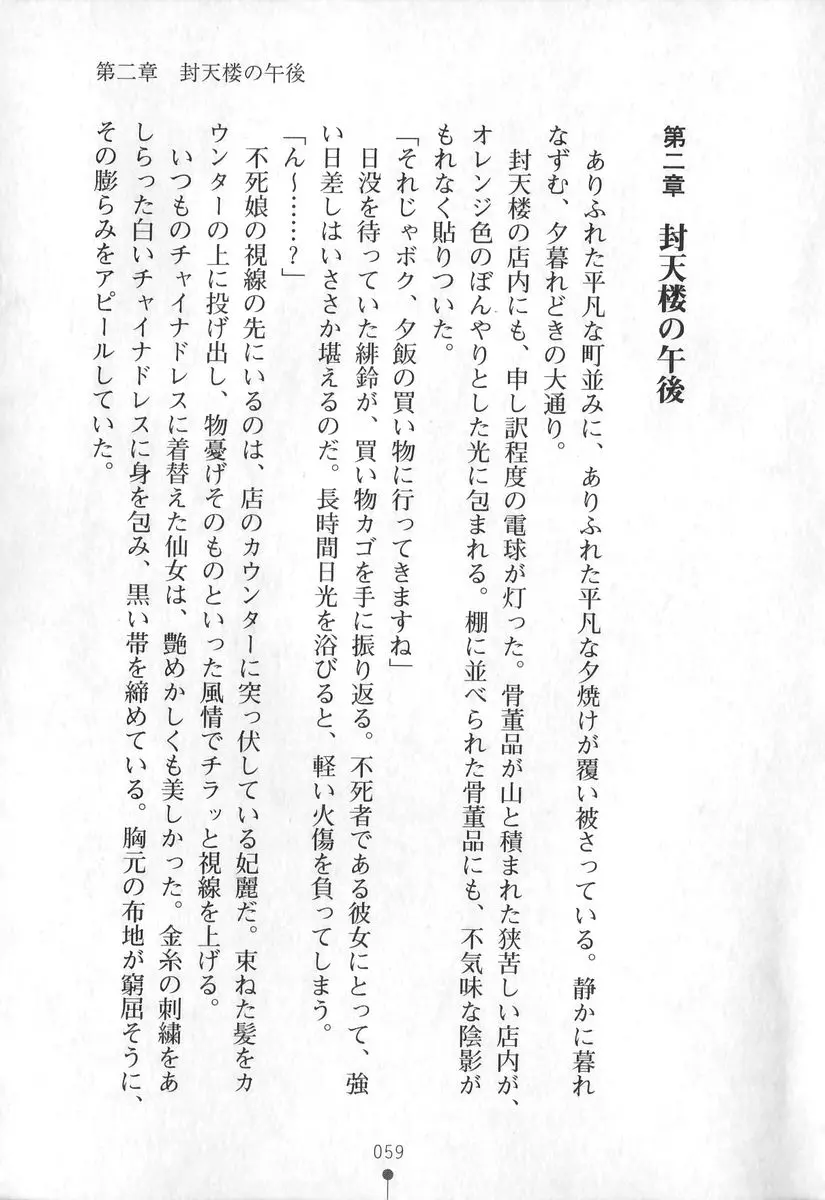 第二章　封天楼の午後
第二章　封天楼の午後
　ありふれた平凡な町並みに、ありふれた平凡な夕焼けが覆い被さっている。静かに暮れ
なずむ、夕暮れどきの大通り。
　封天楼の店内にも、申し訳程度の電球が灯った。骨董品が山と積まれた狭苦しい店内が、
オレンジ色のぼんやりとした光に包まれる。棚に並べられた骨董品にも、不気味な陰影が
もれなく貼りついた。
「それじゃボク、夕飯の買い物に行ってきますね」
　日没を待っていた緋鈴が、買い物カゴを手に振り返る。不死者である彼女にとって、強
い日差しはいささか堪えるのだ。長時間日光を浴びると、軽い火傷を負ってしまう。
「ん〜……？」
　不死娘の視線の先にいるのは、店のカウンターに突っ伏している妃麗だ。束ねた髪をカ
ウンターの上に投げ出し、物憂げそのものといった風情でチラッと視線を上げる。
　いつものチャイナドレスに着替えた仙女は、艶めかしくも美しかった。金糸の刺繍をあ
しらった白いチャイナドレスに身を包み、黒い帯を締めている。胸元の布地が窮屈そうに、
その膨らみをアピールしていた。
059